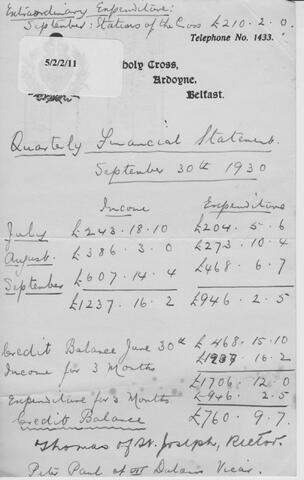 Extraordinary Expenditure:
September: Stations of the Cross £210. 2. 0.
Telephone No. 1433.
5/2/2/11
Holy Cross,
Ardoyne,
Belfast.
Quarterly Financial Statement.
September 30th 1930
Income Expenditure
July £243. 18. 10 £204. 5. 6
August. £386. 3. 0 £273. 10. 4
September £607. 14. 4 £468. 6. 7
£1237. 16. 2 £946. 2. 5
Credit Balance June 30th £468. 15. 10
Income for 3 Months £1237. 16. 2
£1706. 12. 0
Expenditure for 3 Months £946. 2. 5
Credit Balance £760. 9. 7.
Thomas of St. Joseph, Rector.
Peter Paul of Vicar.